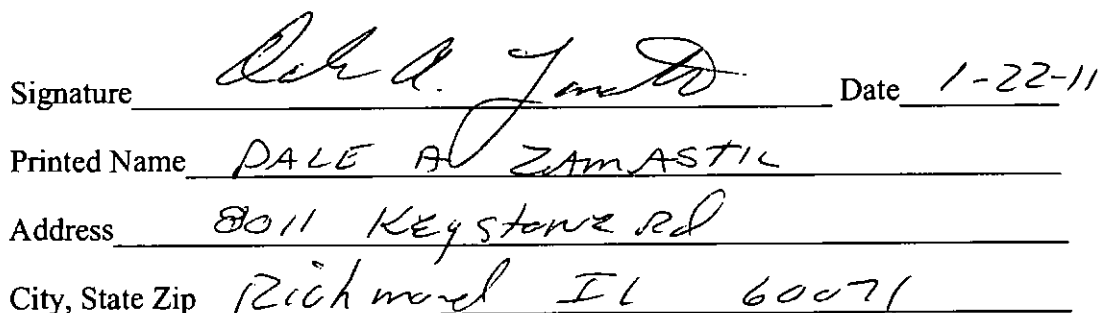 Signature Dale A. Zamastil Date 1-22-11
Printed Name DALE A ZAMASTIL
Address 8011 Keystone Rd
City, State Zip Richmond IL 60071